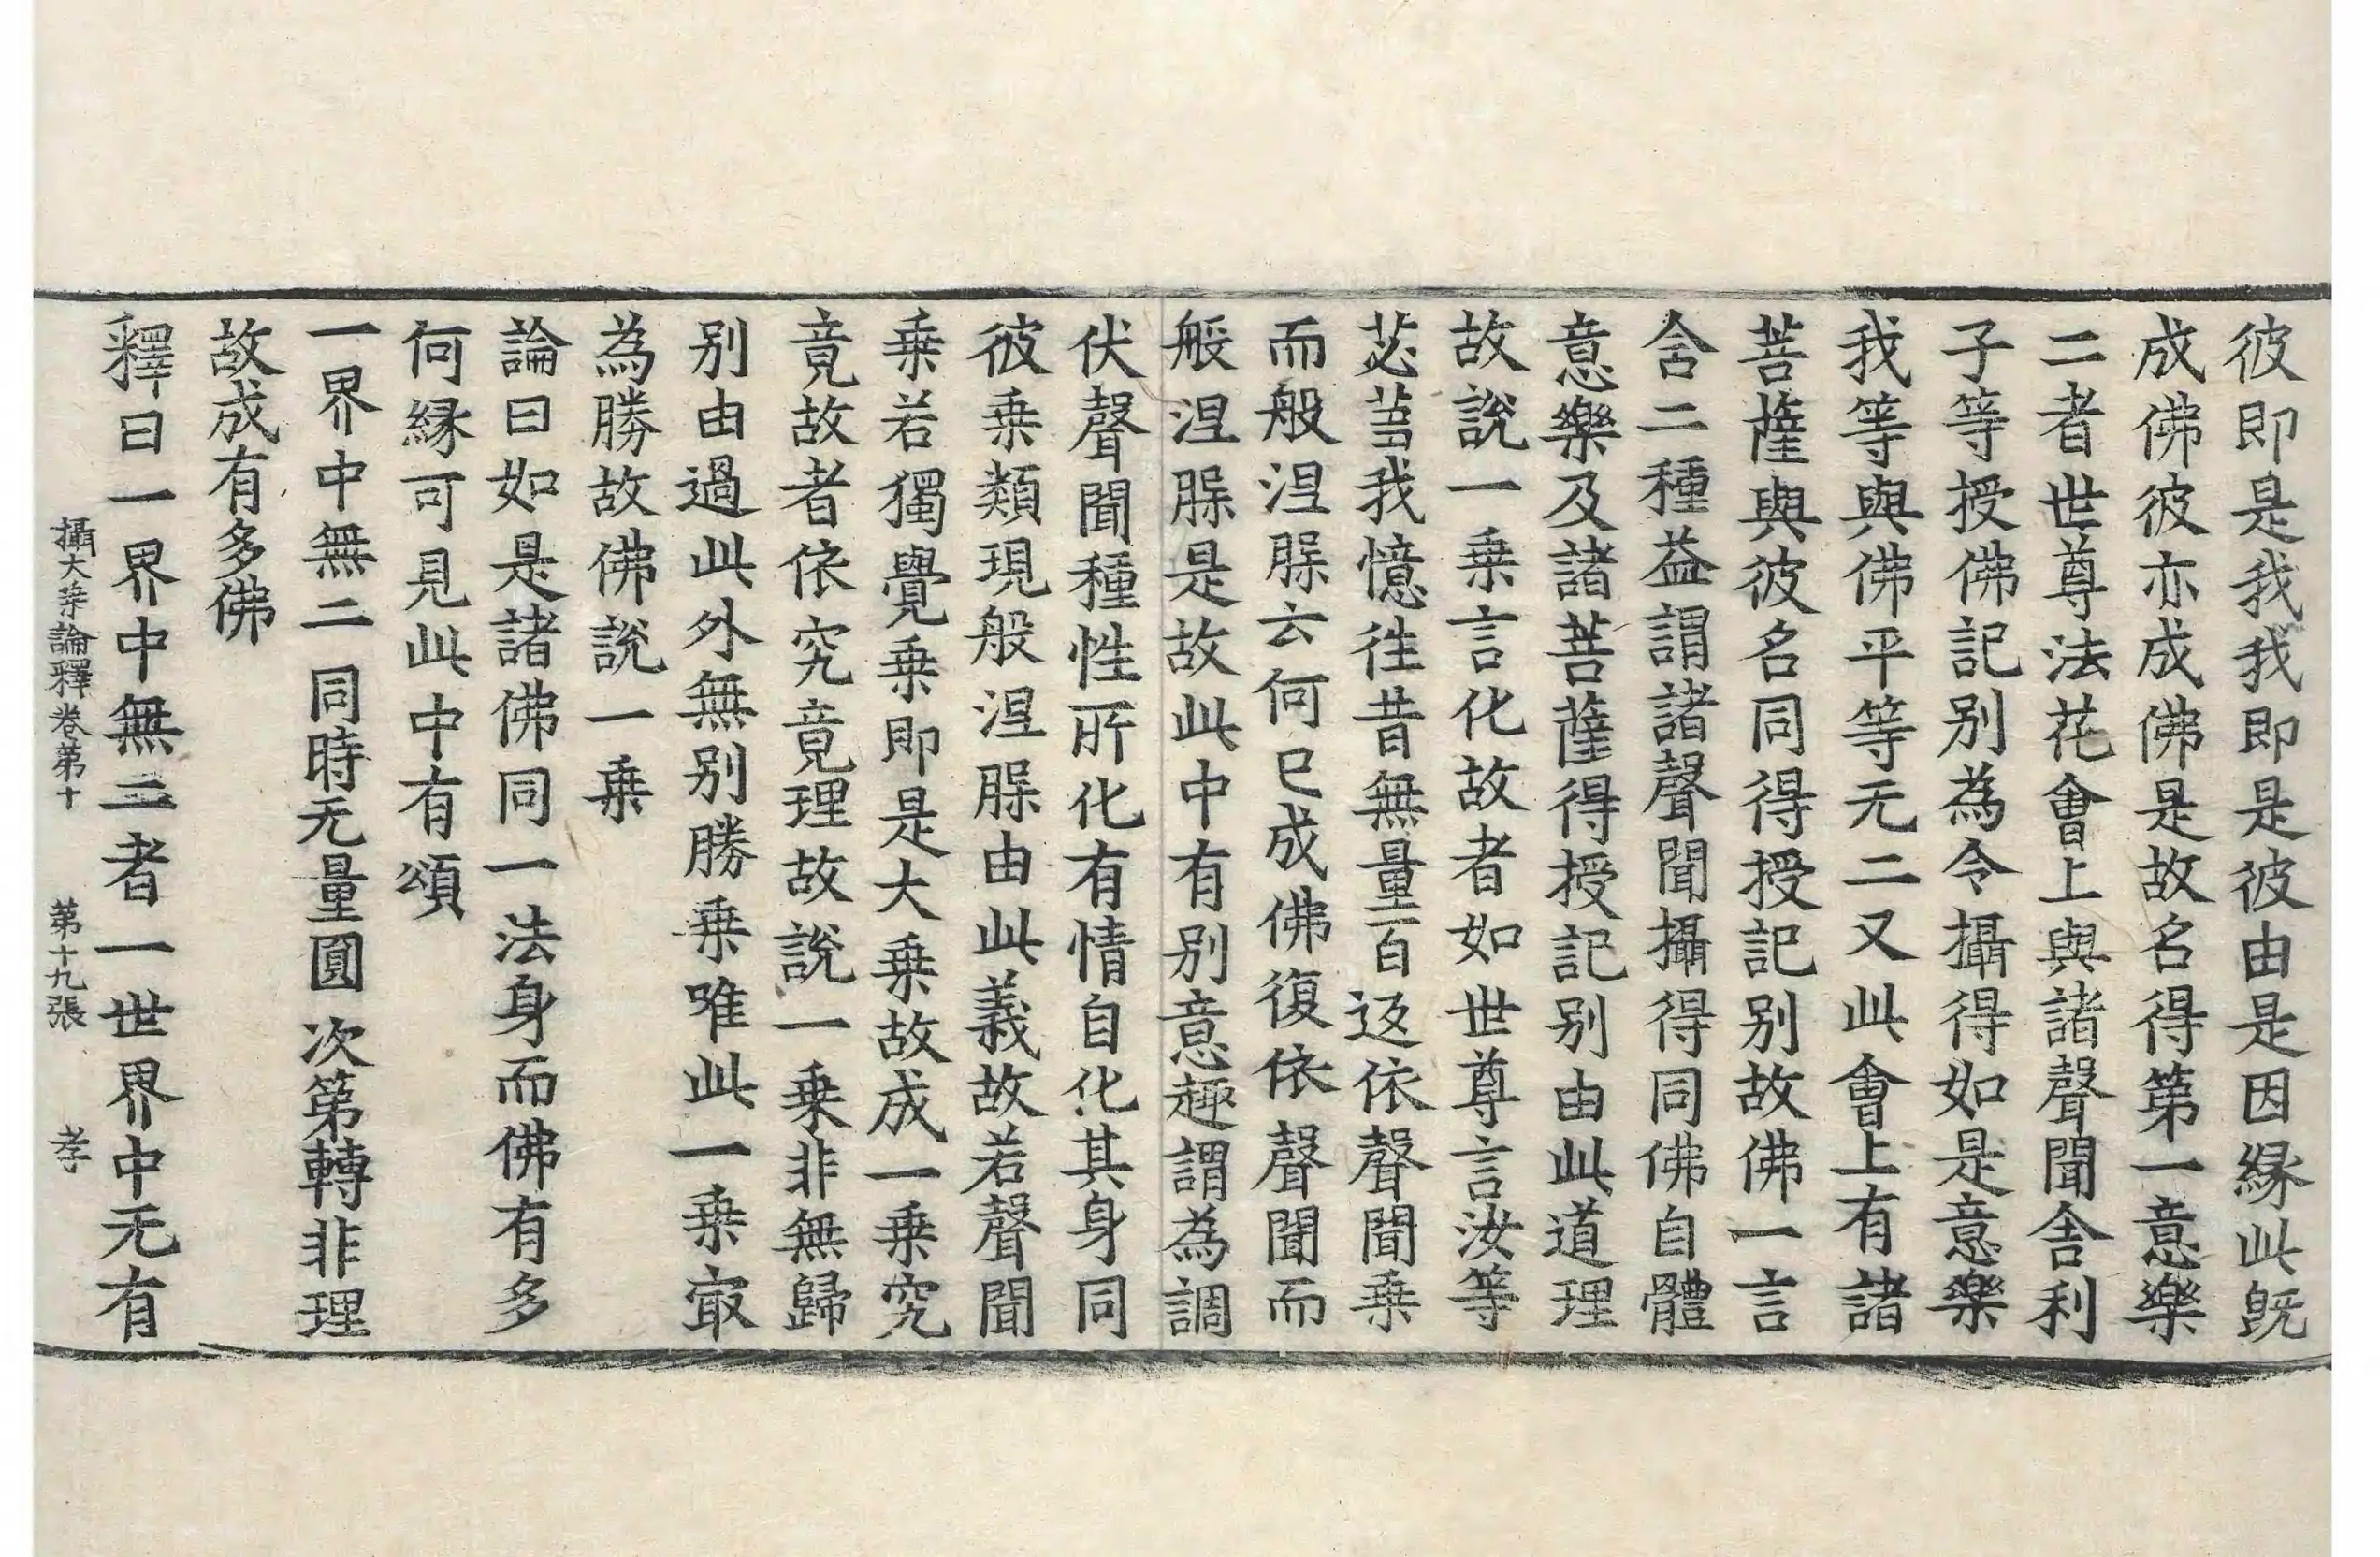 彼即是我我即是彼由是因縁此既
成佛彼亦成佛是故名得第一意樂
二者世尊法花會上與諸聲聞舎利
子等授佛記别為令攝得如是意樂
我等與佛平等无二又此會上有諸
菩薩與彼名同得授記别故佛一言
含二種益謂諸聲聞攝得同佛自體
意樂及諸菩薩得授記别由此道理
故說一乗言化故者如世尊言汝等
苾芻我憶徃昔無量百返依聲聞乗
而般涅槃云何已成佛復依聲聞而
般涅槃是故此中有别意趣謂為調
伏聲聞種性所化有情自化其身同
彼乗類現般涅槃由此義故若聲聞
乗若獨覺乗即是大乗故成一乗究
竟故者依究竟理故說一乗非無歸
别由過此外無别勝乗唯此一乗㝡
為勝故佛說一乗
論曰如是諸佛同一法身而佛有多
何縁可見此中有頌
一界中無二 同時无量圓 次第轉非理
故成有多佛
釋曰一界中無二者一世界中无有
攝大乗論釋卷第十 第十九張 孝